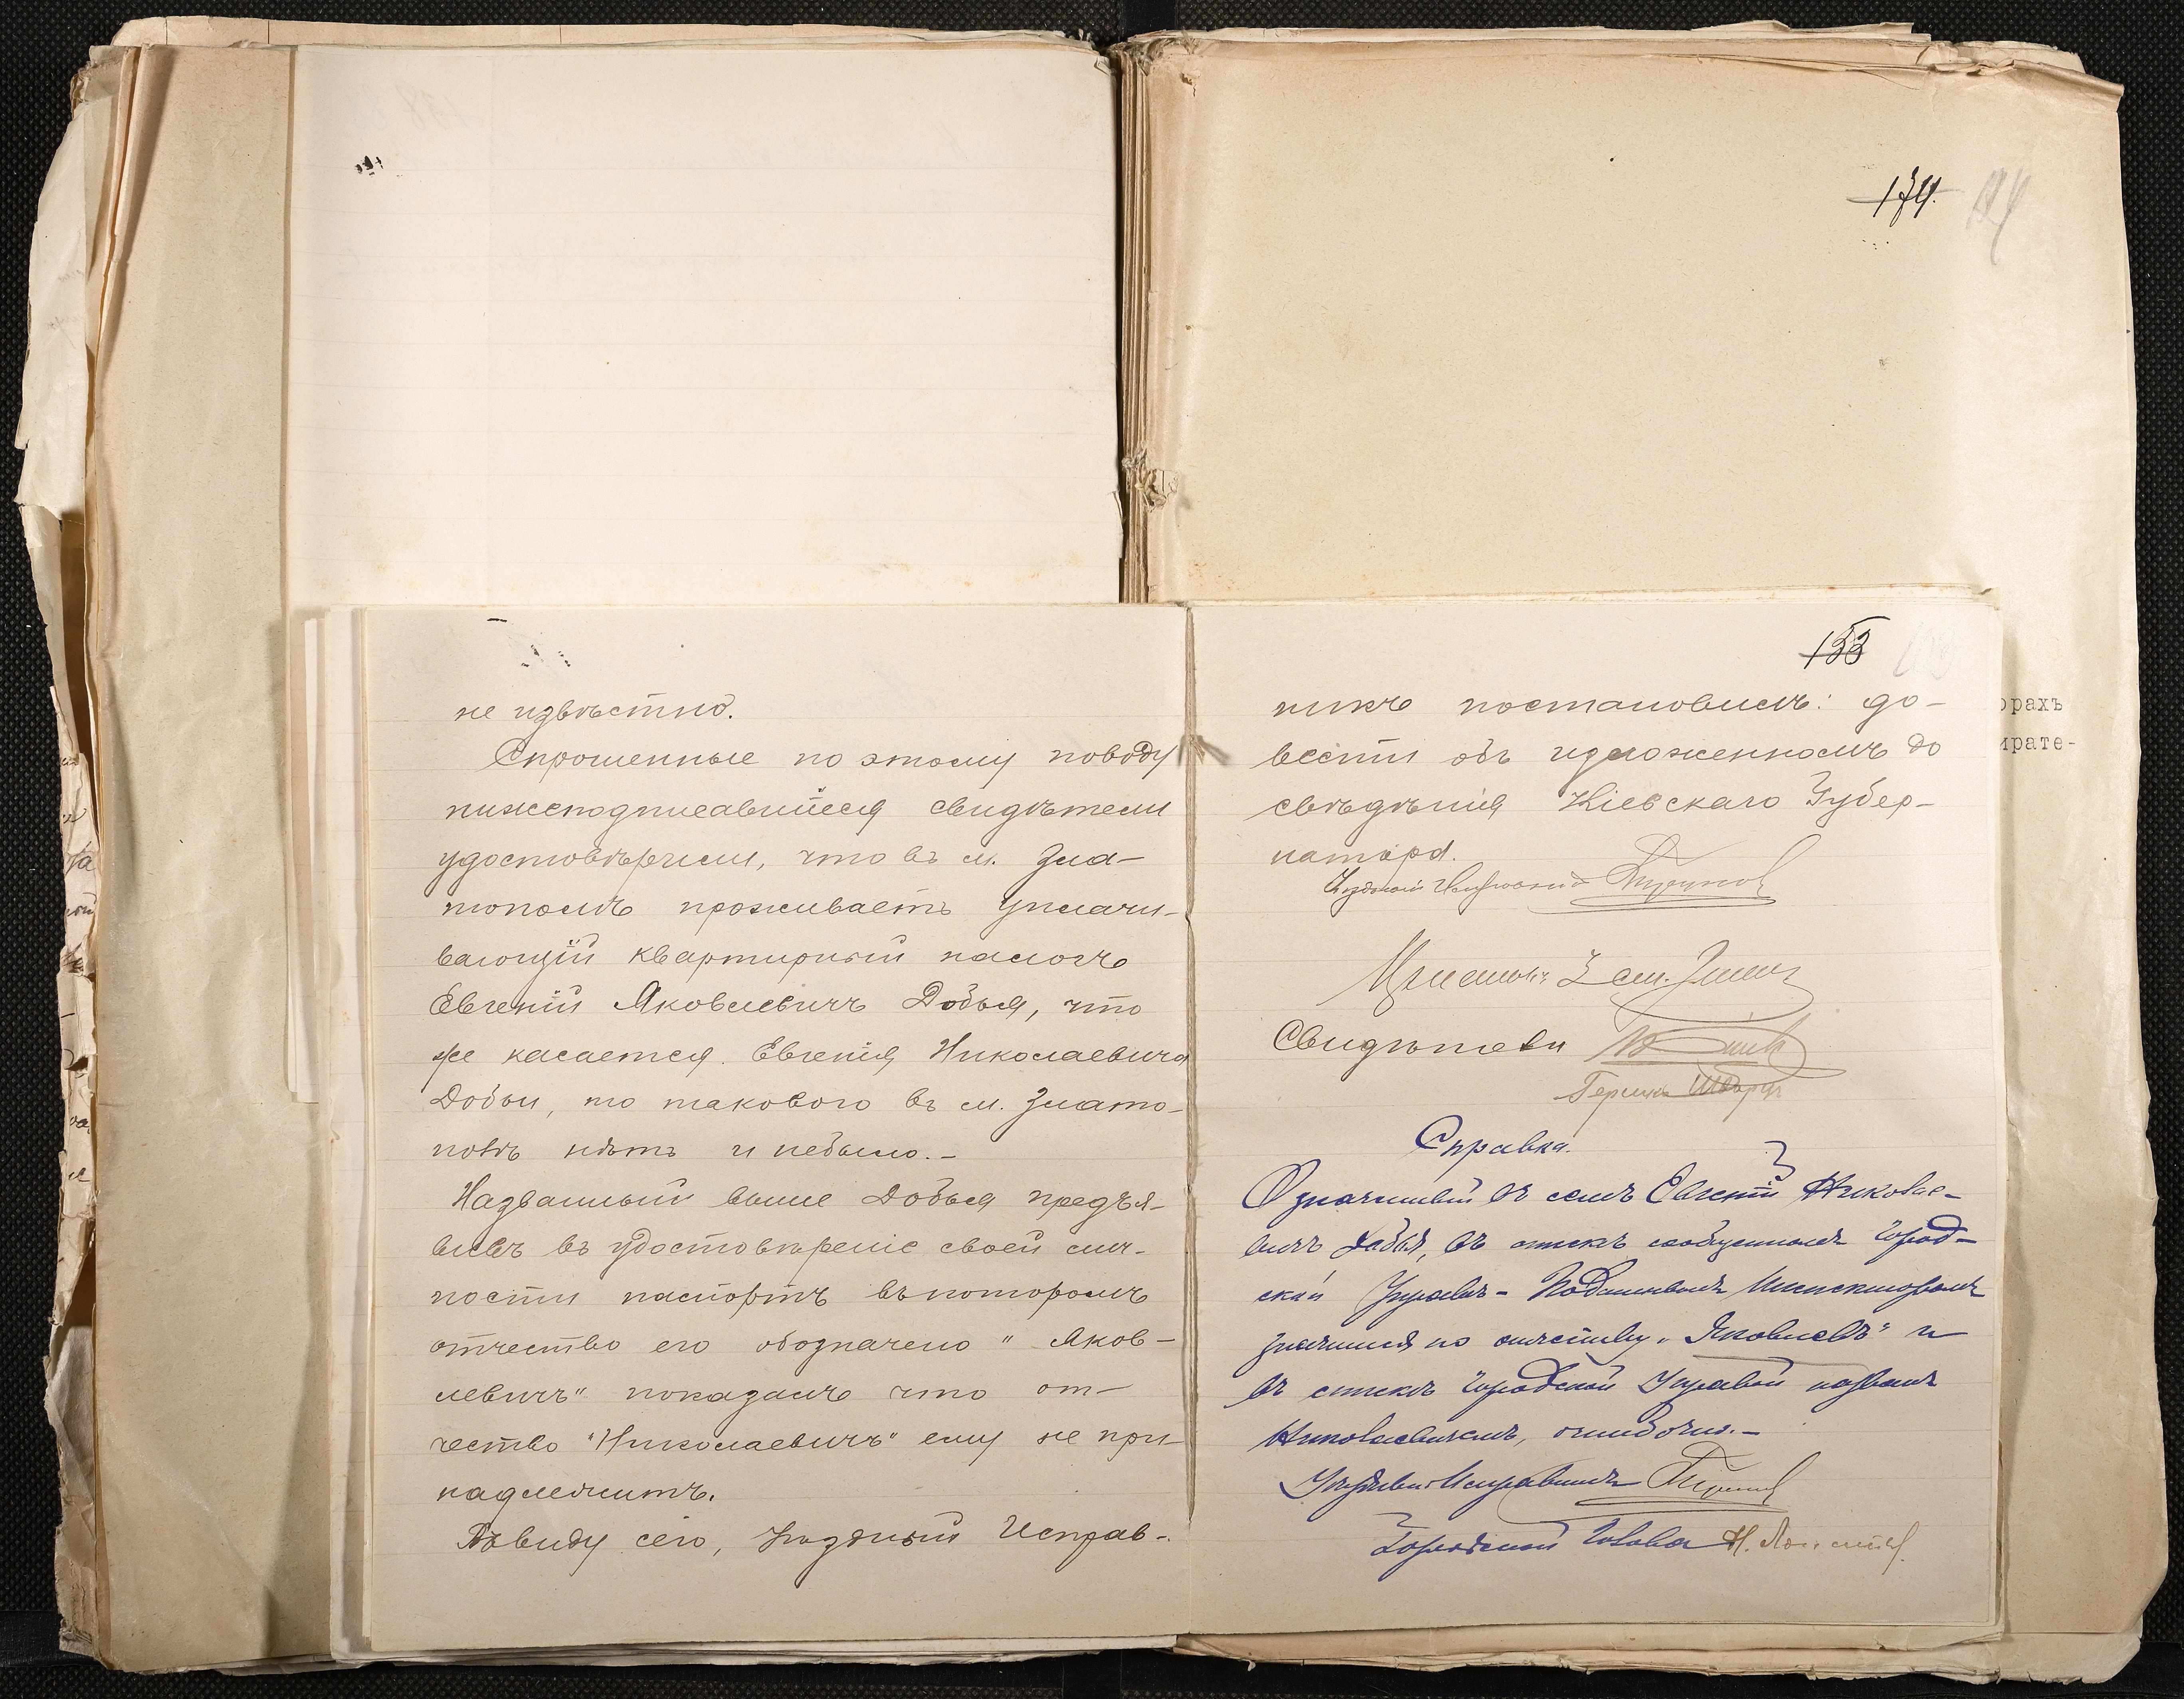 не извѣстно.
Спрошенные по этому поводу
нижеподписавшіеся свидѣтели
удостовѣрили, что въ м. Зла-
тополѣ проживаетъ уплачи-
вающій квартирный налогъ
Евгеній Яковлевичъ Добья, что
же касается Евгенія Николаевича
Добьи, то такового въ м. Злато-
полѣ нѣтъ и небыло.-
Названный выше Добья предъя-
вивъ въ удостовѣреніе своей лич-
ности паспортъ въ которомъ
отчество его обозначено "Яков-
левичъ" показалъ что от-
чество "Николаевичъ" ему не при-
надлежитъ.
Въ виду сего, Уѣздный Исправ-
174.
153
никъ постановилъ: до-
вести объ изложенномъ до
свѣдѣнія Кіевскаго Губер-
натора.
Уѣздный Исправникъ
Свидѣтели
Справка.
Означенный въ семъ Евгеній Николае-
вичъ Добья, въ спискѣ сообщенномъ Город-
ской Управѣ - Податнымъ Инспекторомъ
значился по отчеству "Яковлевъ" и
въ спискѣ Городской Управой названъ
Николаевичемъ, ошибочно.-
Уѣздный Исправникъ
Городской Голова Н.
орахъ
ирате-